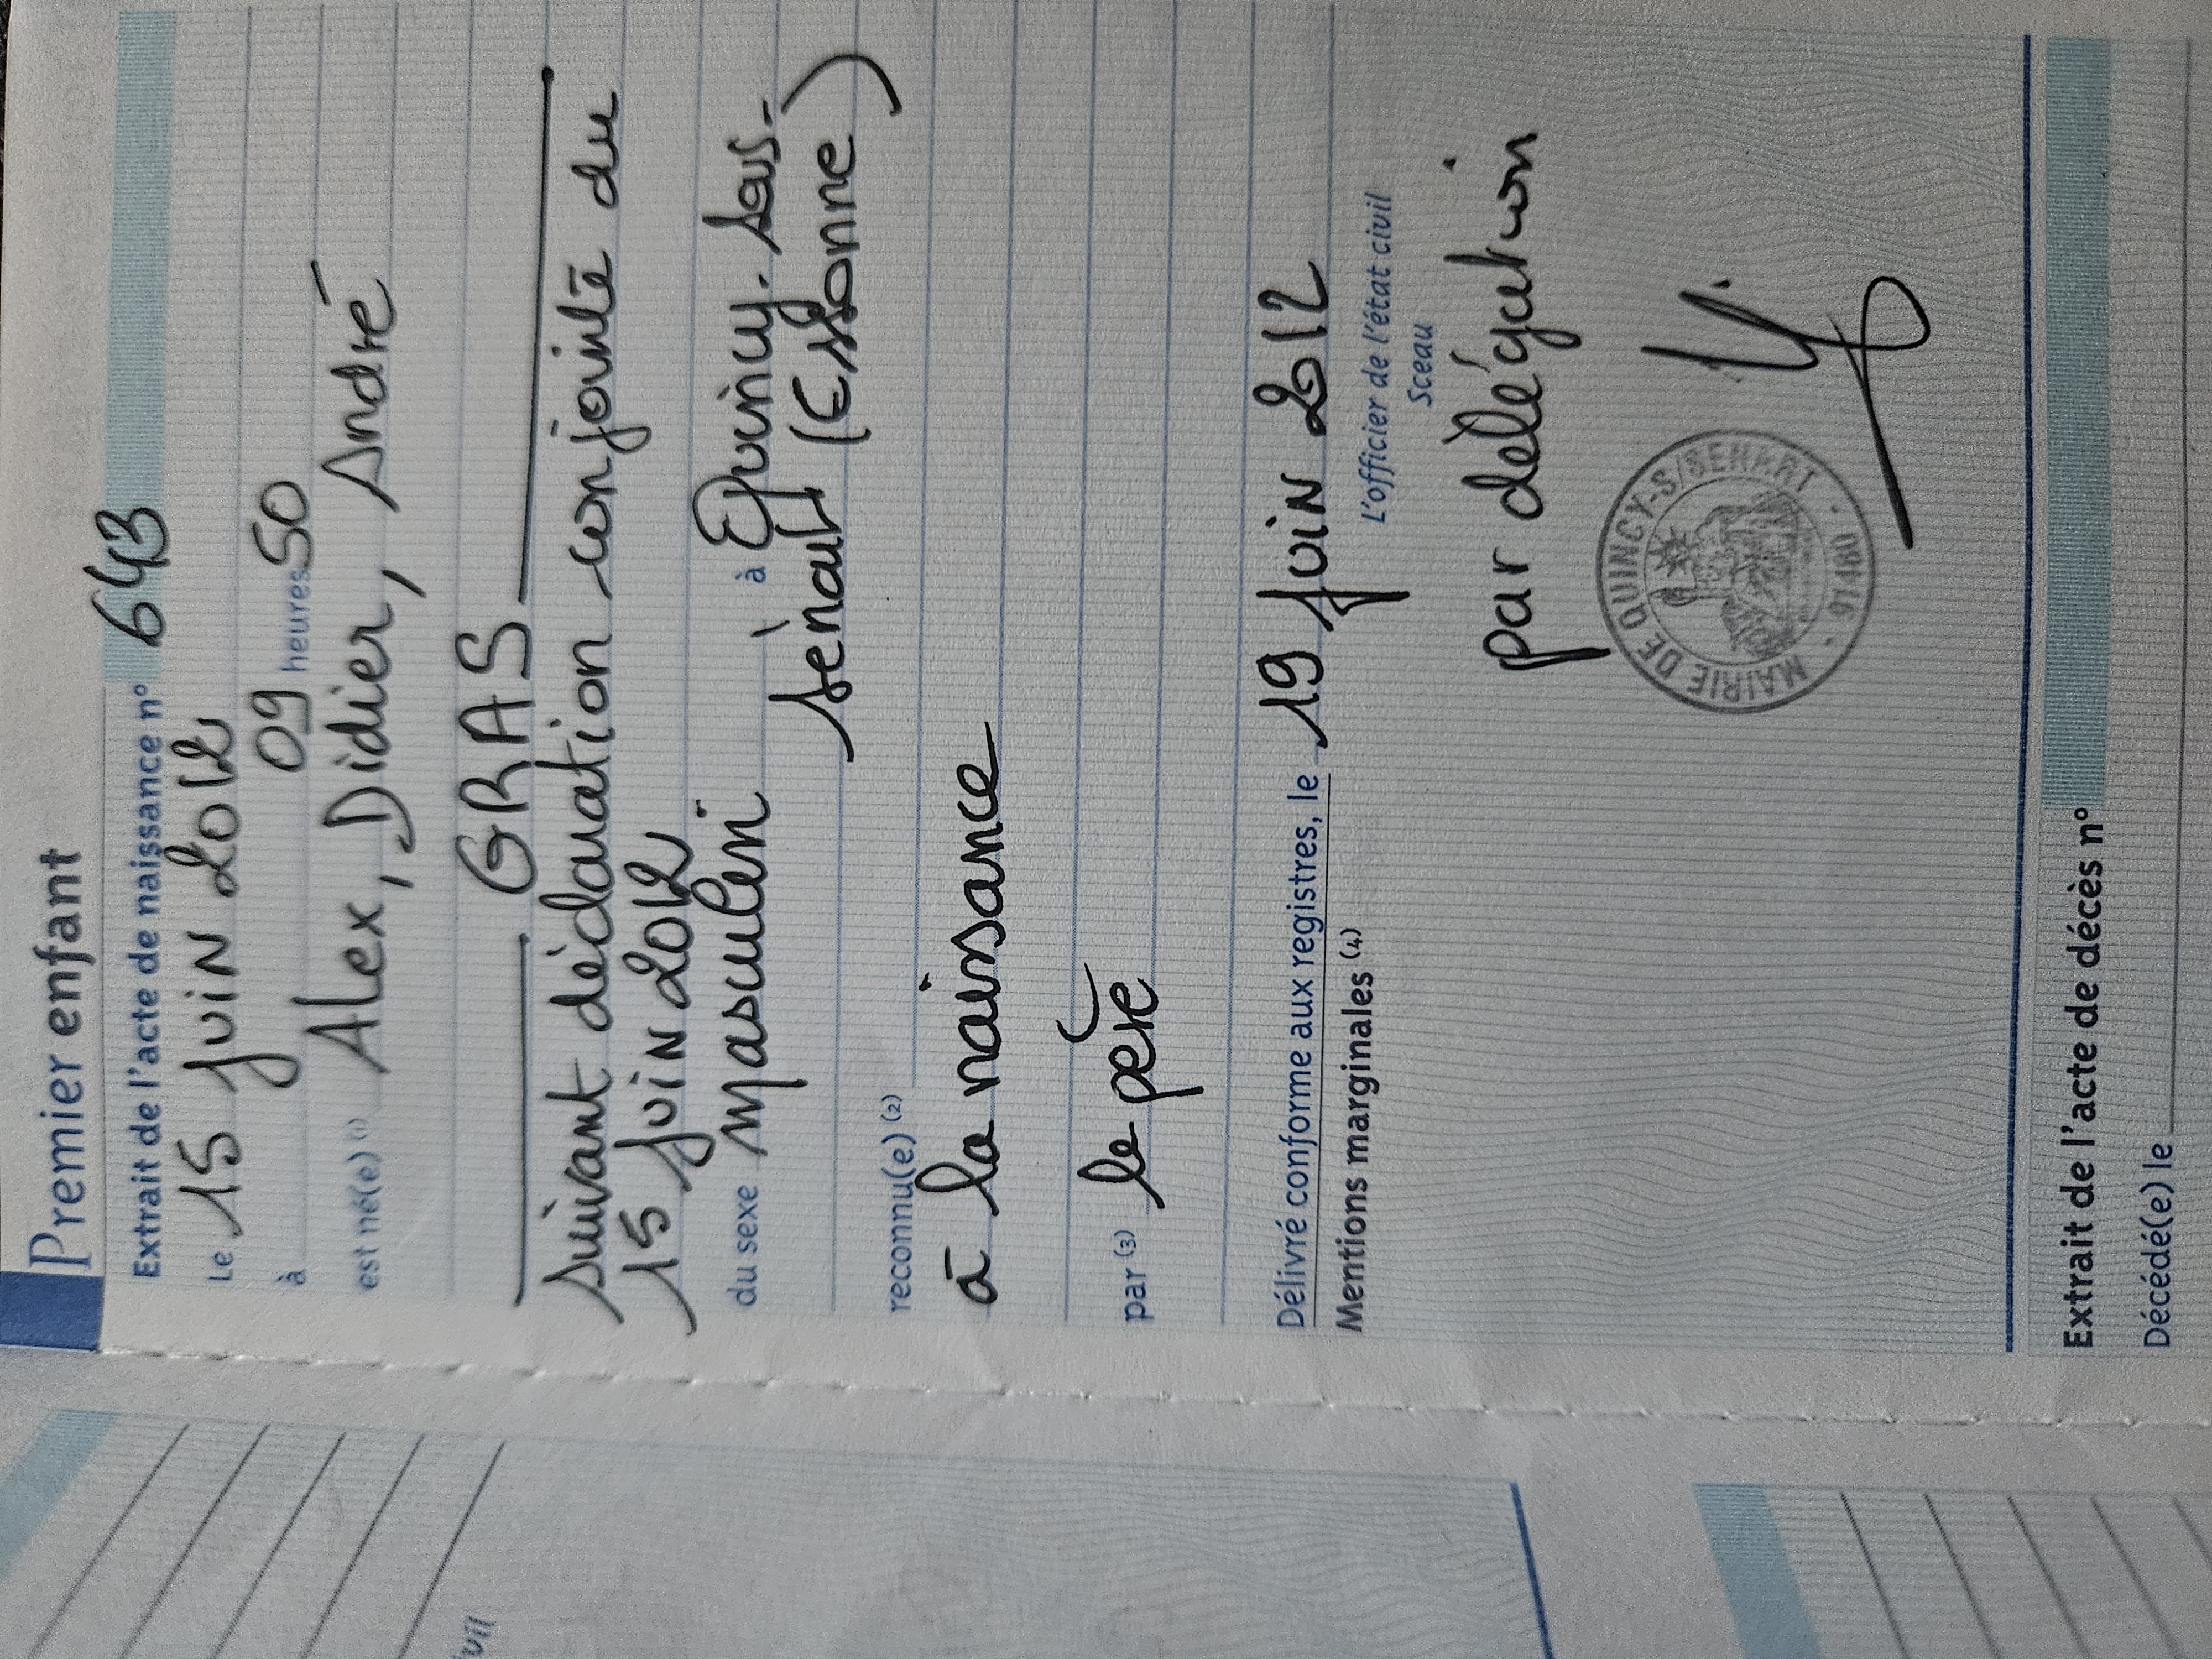 Premier enfant
Extrait de l'acte de naissance n° 643
Le 15 juin 2012
à 09 heures 50
est né(e) (1) Alex, Didier, André
GRAS
suivant déclaration conjointe du
15 juin 2012
du sexe masculin à Quincy-sous-
Sénart (Essonne)
reconnu(e) (2)
à la naissance
par (3) le père
Délivré conforme aux registres, le 19 juin 2012
Mentions marginales (4)
L'officier de l'état civil
Sceau
par délégation
MAIRIE DE QUINCY-S/SENART · 91480 ·
Extrait de l'acte de décès n°
Décédé(e) le